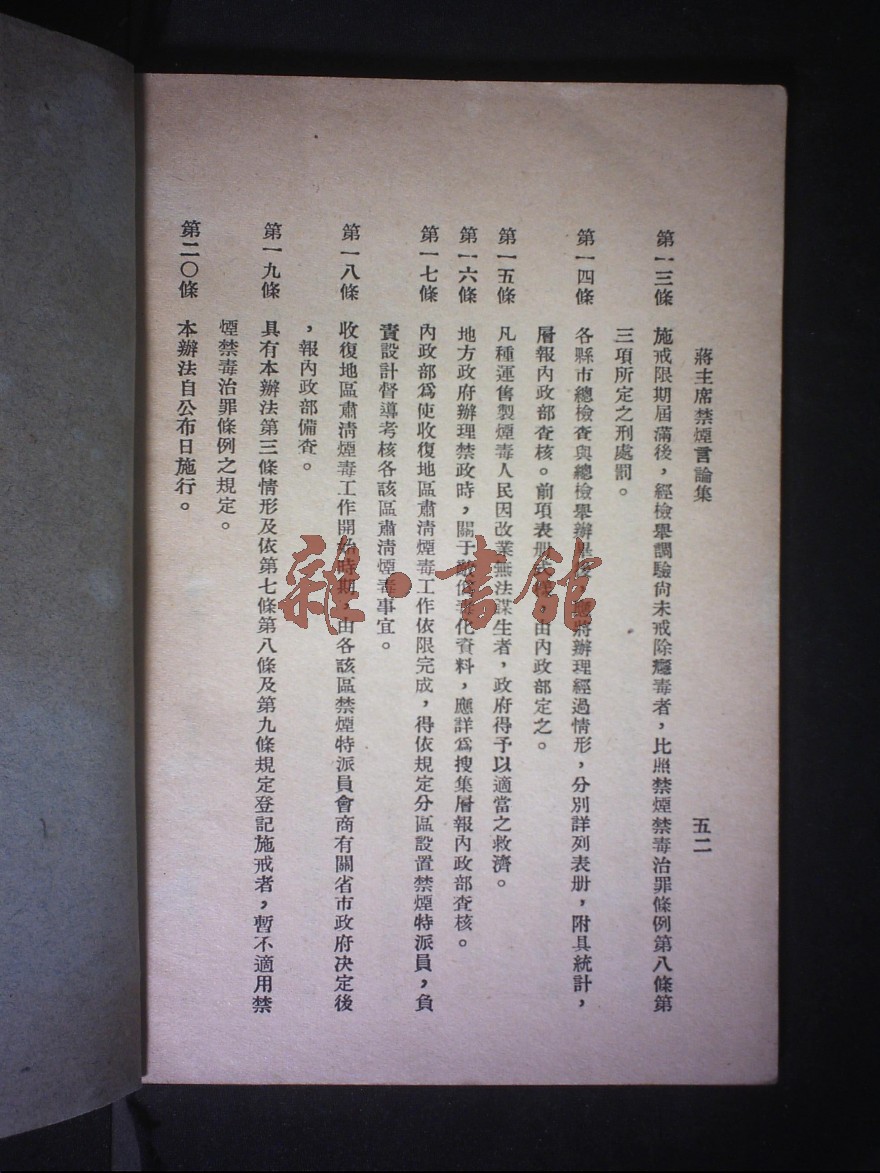 蔣主席禁煙言論集　五二
第一三條　施戒限期屆滿後，經檢舉調驗尙未戒除癮毒者，比照禁煙禁毒治罪條例第八條第
三項所定之刑處罰。
第一四條　各縣市總檢查與總檢舉辦畢後，應將辦理經過情形，分別詳列表册，附具統計，
層報內政部查核。前項表册由內政部定之。
第一五條　凡種運售製煙毒人民因改業無法謀生者，政府得予以適當之救濟。
第一六條　地方政府辦理禁政時，關于毒化資料，應詳爲搜集層報內政部查核。
第一七條　內政部爲使收復地區肅淸煙毒工作依限完成，得依規定分區設置禁煙特派員，負
責設計督導考核各該區肅淸煙毒事宜。
第一八條　收復地區肅淸煙毒工作開始時期，由各該區禁煙特派員會商有關省市政府决定後
，報內政部備查。
第一九條　具有本辦法第三條情形及依第七條第八條及第九條規定登記施戒者，暫不適用禁
煙禁毒治罪條例之規定。
第二〇條　本辦法自公布日施行。
雜·書館